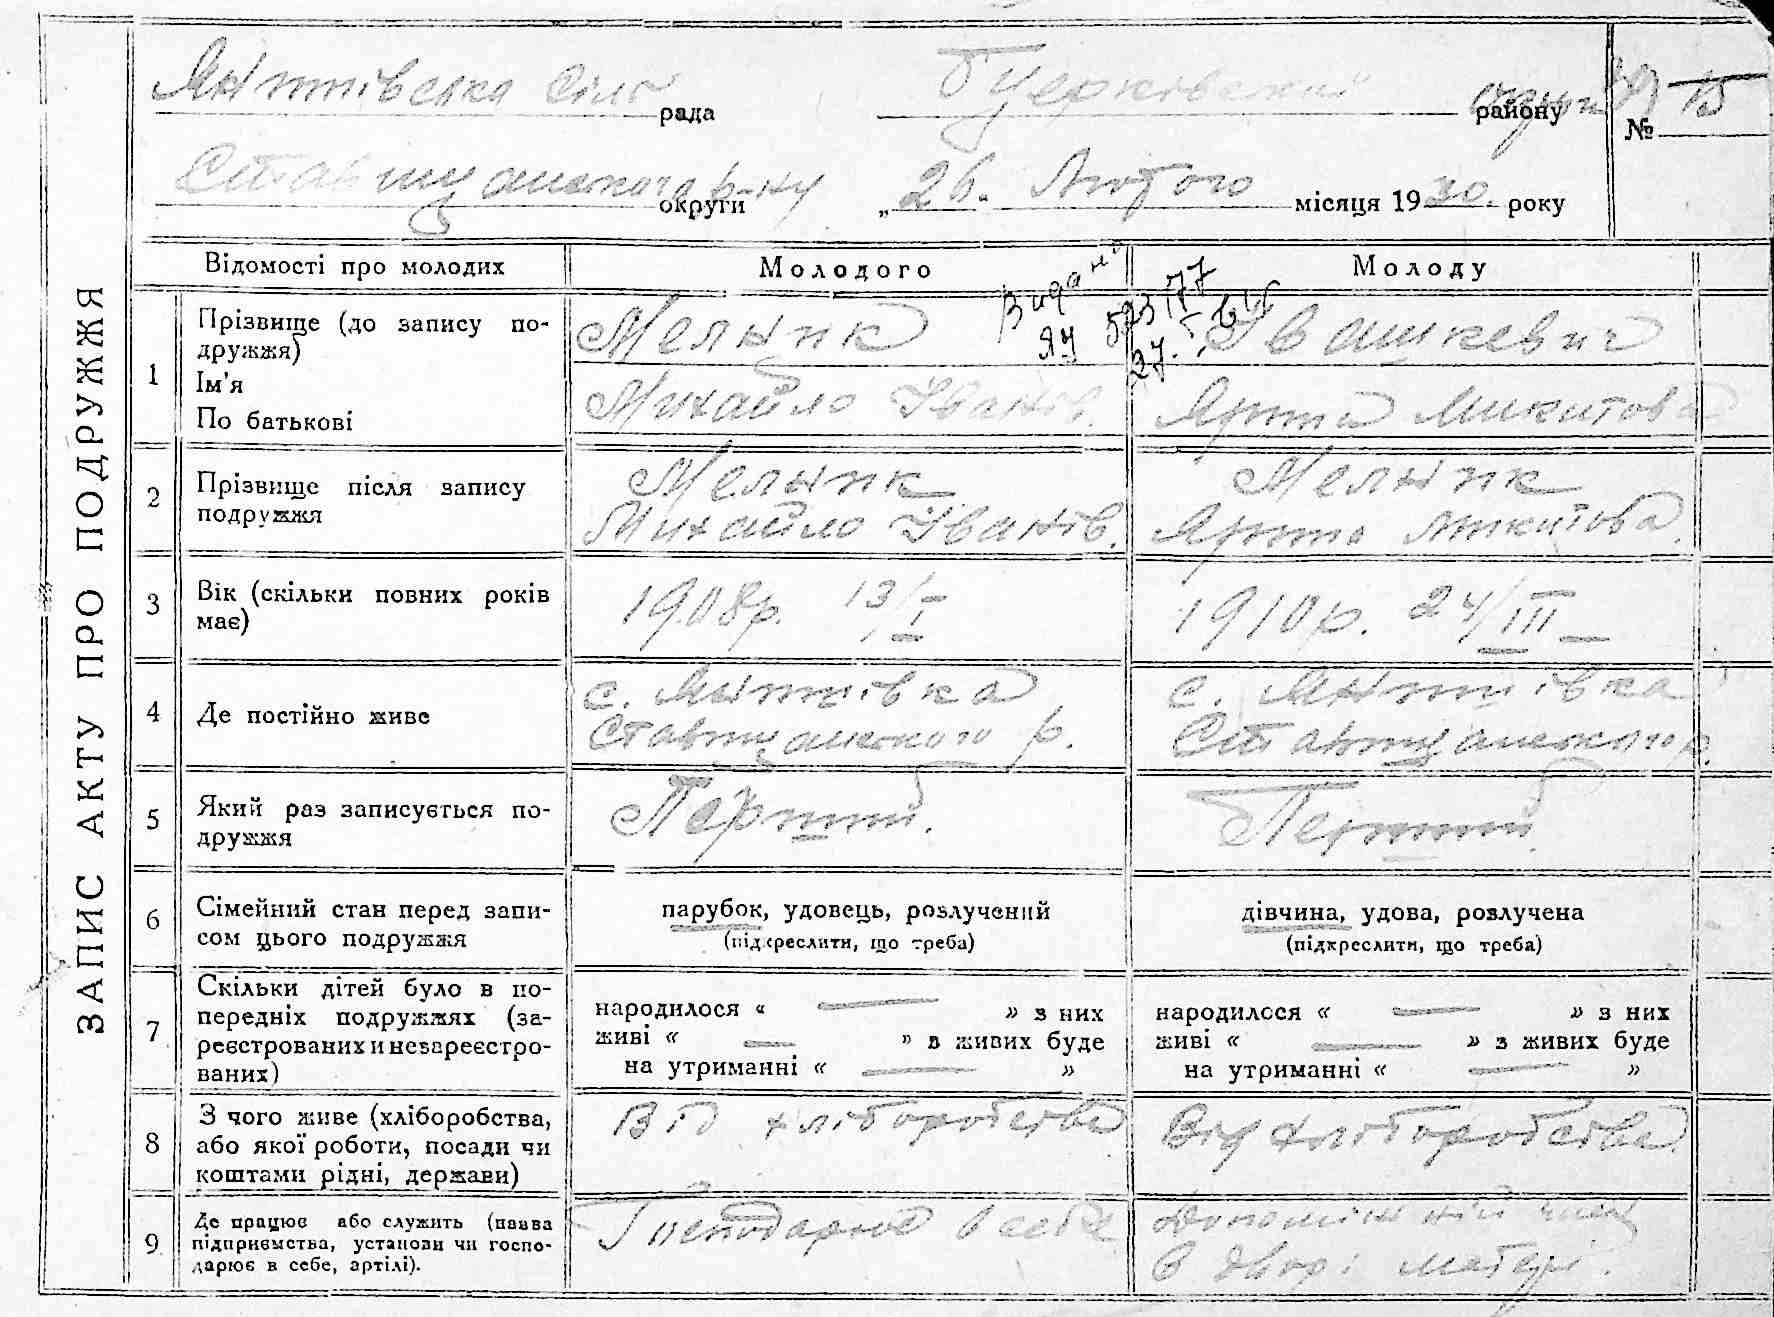 ЗАПИС АКТУ ПРО ПОДРУЖЖЯ
Янтівська Сіль рада
Б Церківский району
№ 15
Ставищанского р-ну округи
„26." Лютого місяця 1930. року
Відомості про молодих
Молодого
Молоду
Видани
ЯУ 573177
27.
1
Прізвище (до запису по-
дружжя)
Ім'я
По батькові
Мельник
Михайло Іванів.
Івашкевич
Микитова
2
Прізвище після запису
подружжя
Мельник
Михайло Іванів.
Мельник
Микитова.
3
Вік (скільки повних років
має)
1908р. 13/I
1910р. 24/III
4
Де постійно живе
с. Янтівка
Ставищанского р.
с. Янтівка
Ставищанского р.
5
Який раз записується по-
дружжя
Перший.
Перший.
6
Сімейний стан перед запи-
сом цього подружжя
парубок, удовець, розлучений
(підкреслити, що треба)
дівчина, удова, розлучена
(підкреслити, що треба)
7
Скільки дітей було в по-
передніх подружжях (за-
реєстрованих и незареєстро-
ваних)
народилося « — » з них
живі « — » в живих буде
на утриманні « — »
народилося « — » з них
живі « — » з живих буде
на утриманні « — »
8
З чого живе (хліборобства,
або якої роботи, посади чи
коштами рідні, держави)
Від хліборобства
Від хліборобства.
9
Де працює або служить (назва
підприємства, установи чи госпо-
дарює в себе, артілі).
Господарює в себе
в дворі матері.